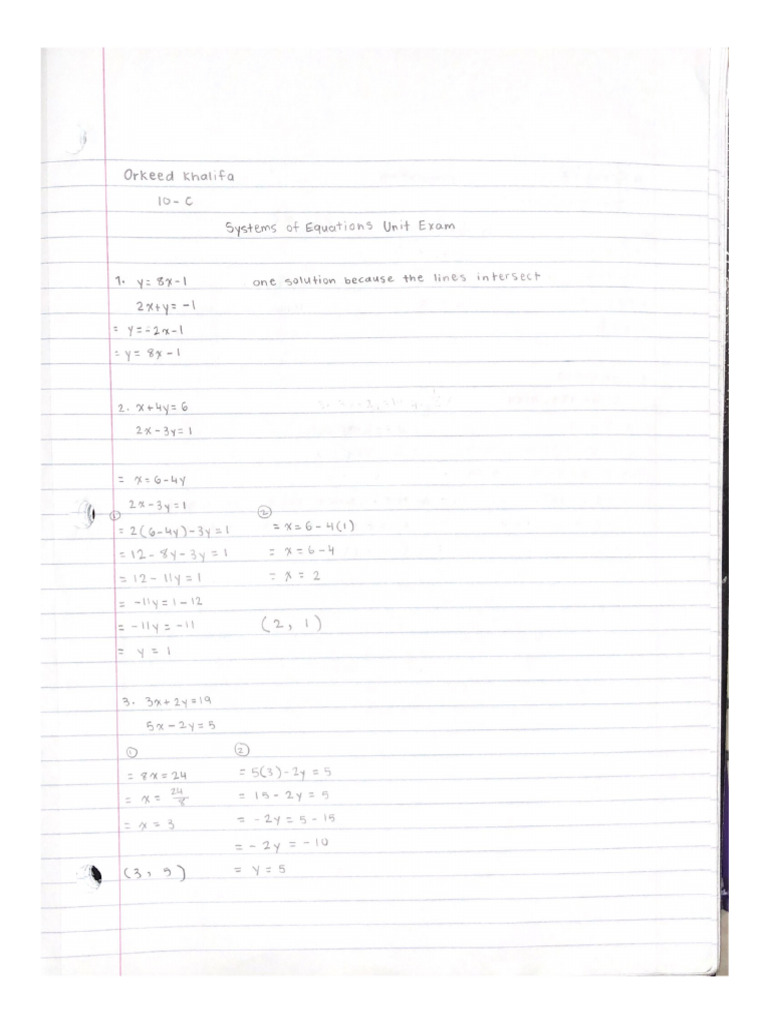 Orkeed Khalifa
10-C
Systems of Equations Unit Exam
1. y= 8x-1 one solution because the lines intersect
2x+y= -1
= y=-2x-1
= y= 8x-1
2. x+4y=6
2x-3y=1
= x=6-4y
2x-3y=1
① ②
=2(6-4y)-3y=1 =x=6-4(1)
=12-8y-3y=1 = x=6-4
=12-11y=1 = x=2
= -11y=1-12
= -11y=-11 (2, 1)
= y=1
3. 3x+2y=19
5x-2y=5
① ②
= 8x=24 =5(3)-2y=5
= x= 24/8 = 15-2y=5
= x=3 = -2y=5-15
= -2y = -10
(3, 5) = y=5